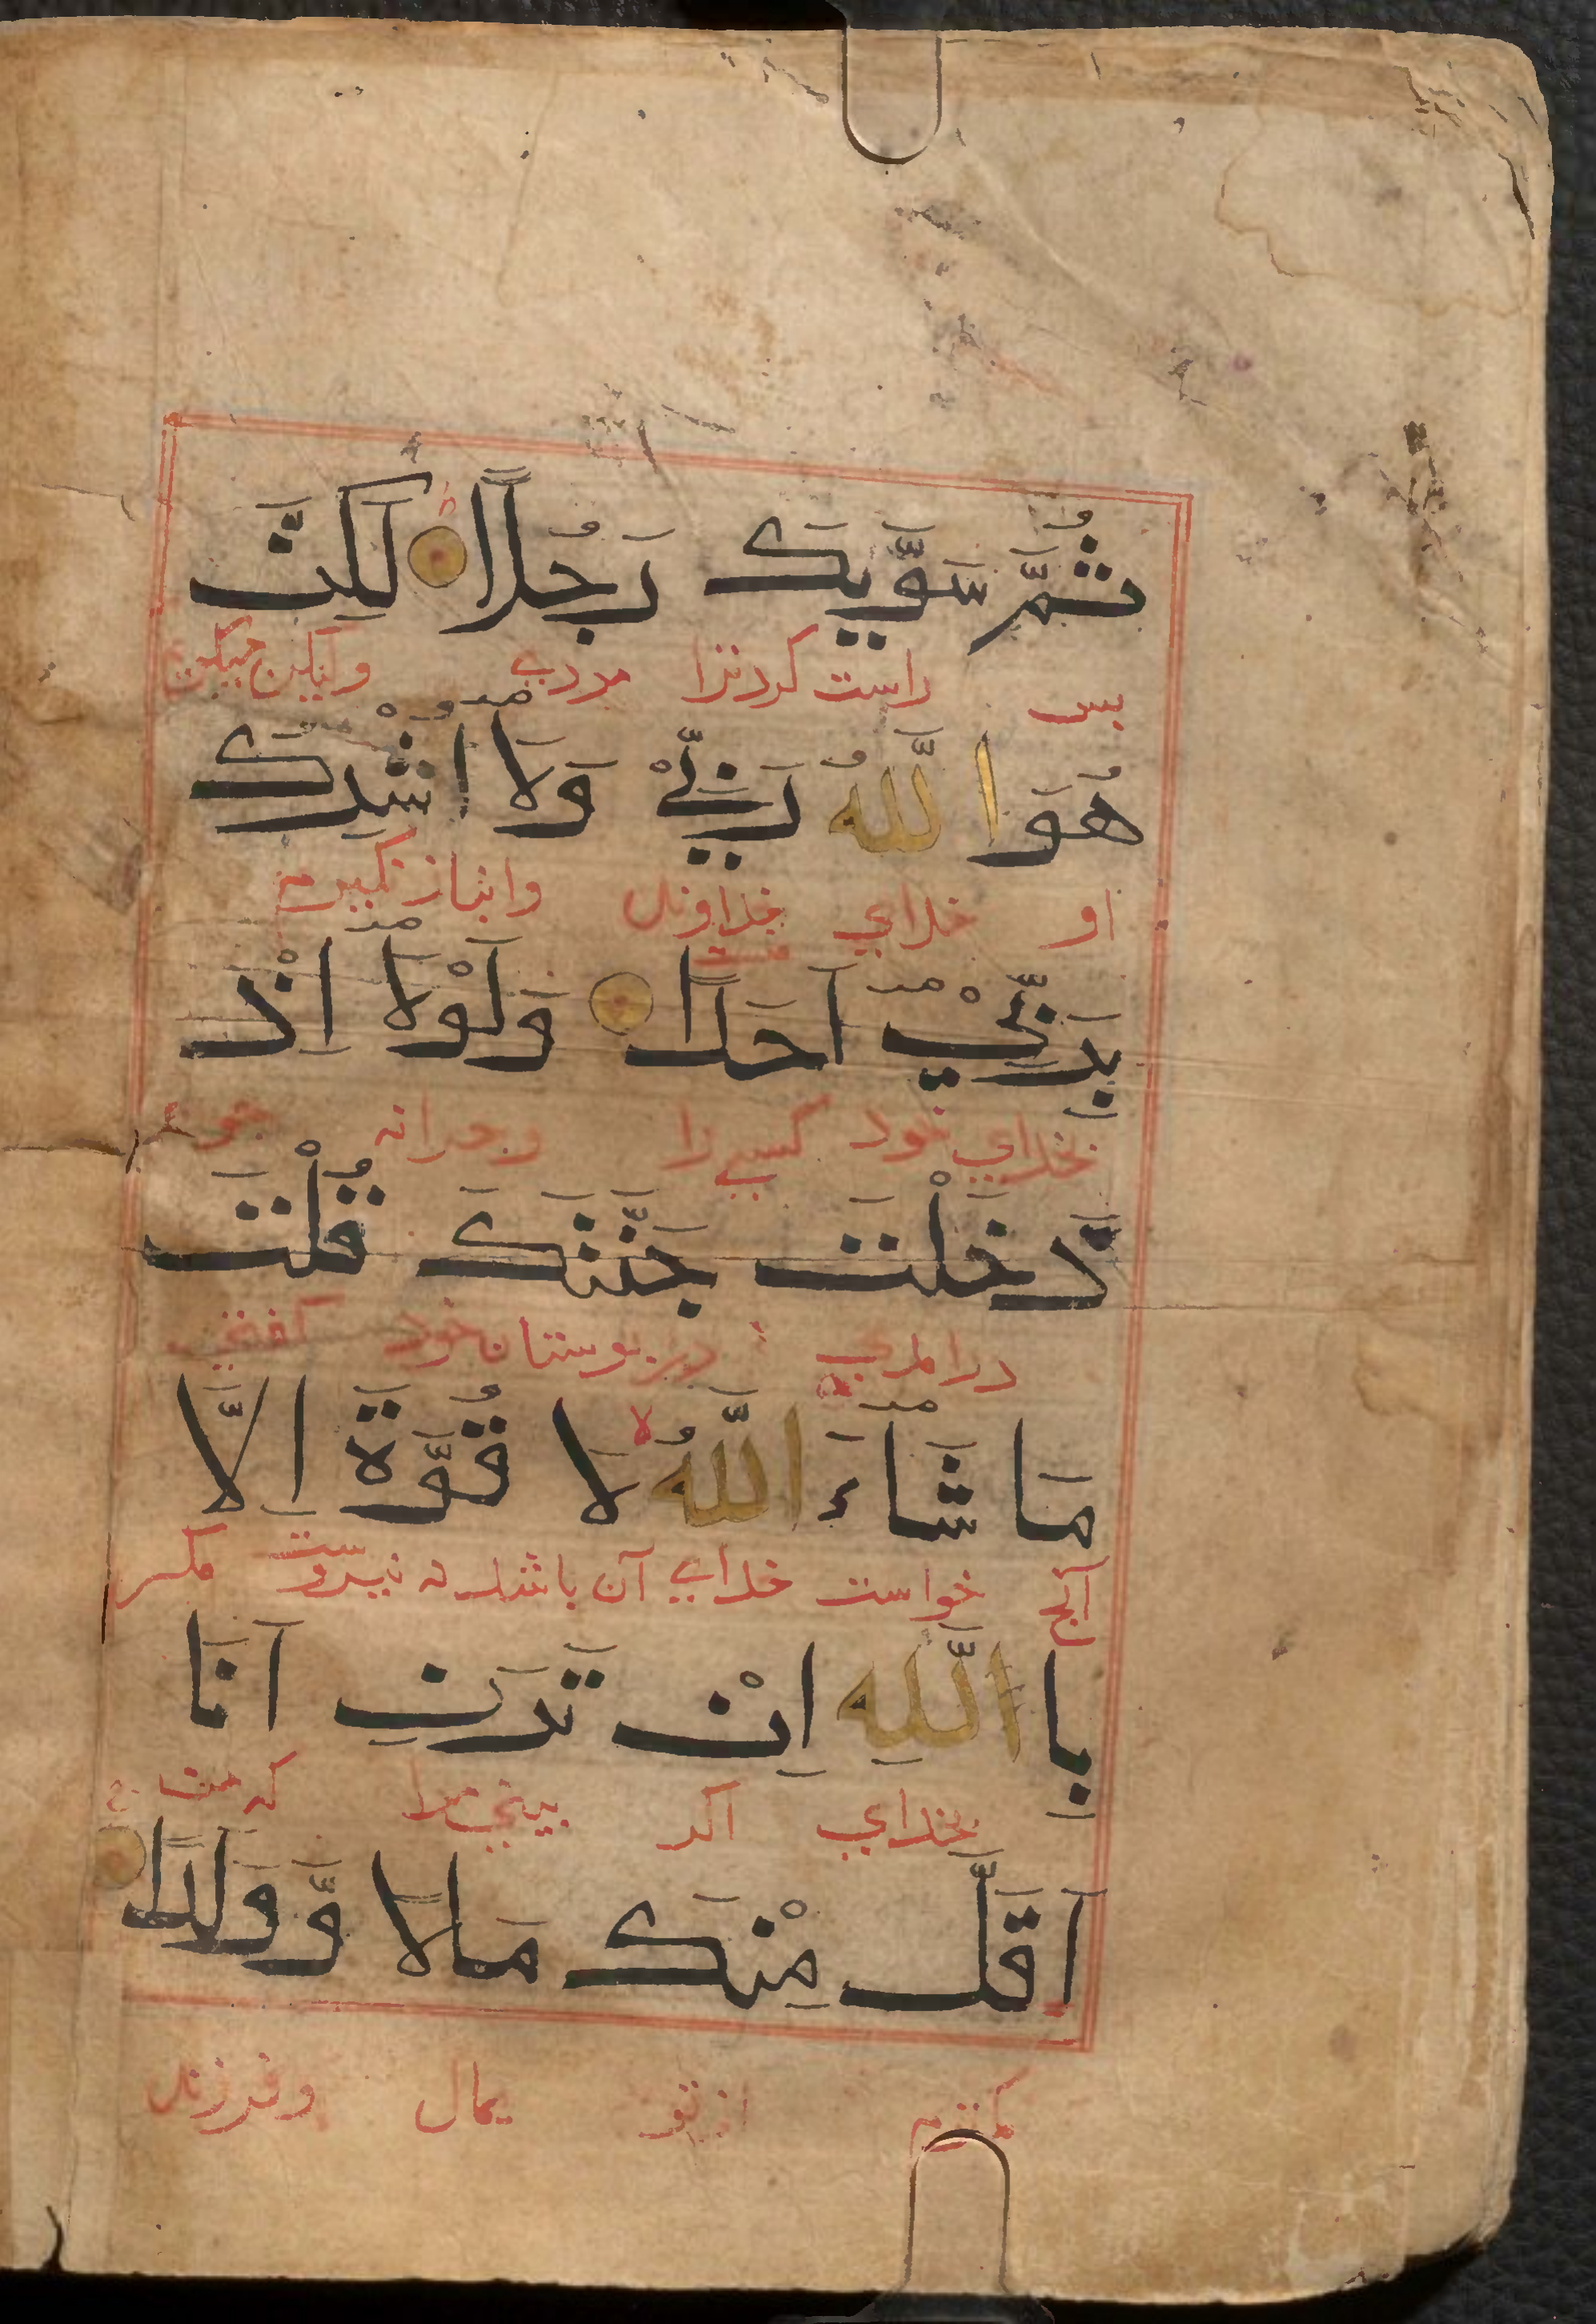 ثُمَّ سَوَّيكَ رَجُلًا لَكِنَّ
بس راست کردترا مردی ولیکن میکن
هُوَا للَّهُ رَبِّيْ وَلَا اُشْرِكُ
او خدای خداوند وانباز نکیرم
منست
بِرَبِّيْ اَحَدًا وَلَوْلَا اِذْ
بخدای خود کسی را وجرانه جو
دَخَلْتَ جَنَّتَكَ قُلْتَ
درامدی در بوستان خود کفتی
مَا شَاءَ اللَّهُ لَا قُوَّةَ اِلَّا
آنج خواست خدای آن باشد نه نیروست مکر
بِا اللَّهِ اِنْ تَرَنِ اَنَا
بخدای اکر بینی مرا که من
اَقَلَّ مِنْكَ مَالًا وَّوَلَدًا
کمترم ازتو بمال وفرزند